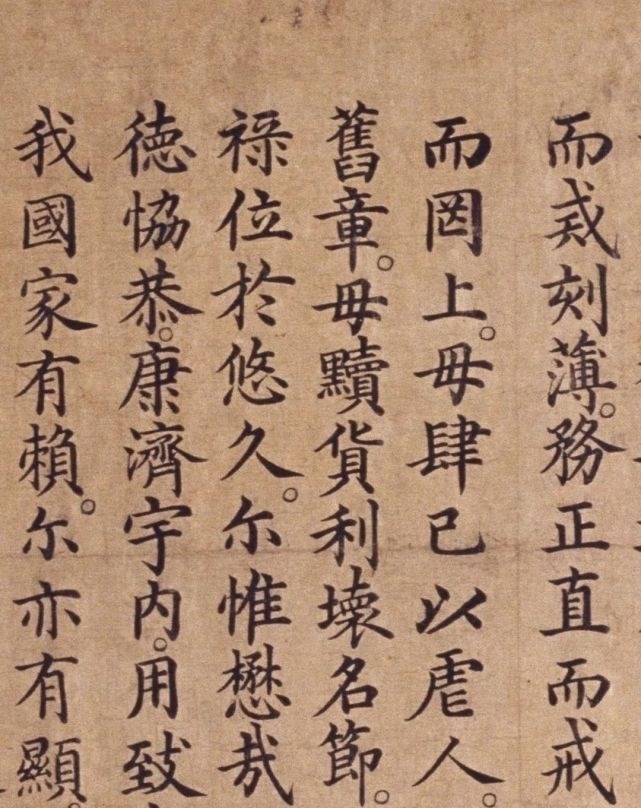 而戒刻薄。務正直而戒
而罔上。毋肆己以虐人。
舊章。毋黷貨利壞名節。
祿位於悠久。尔惟懋哉
德協恭。康濟宇内。用致
我國家有賴。尔亦有顯。